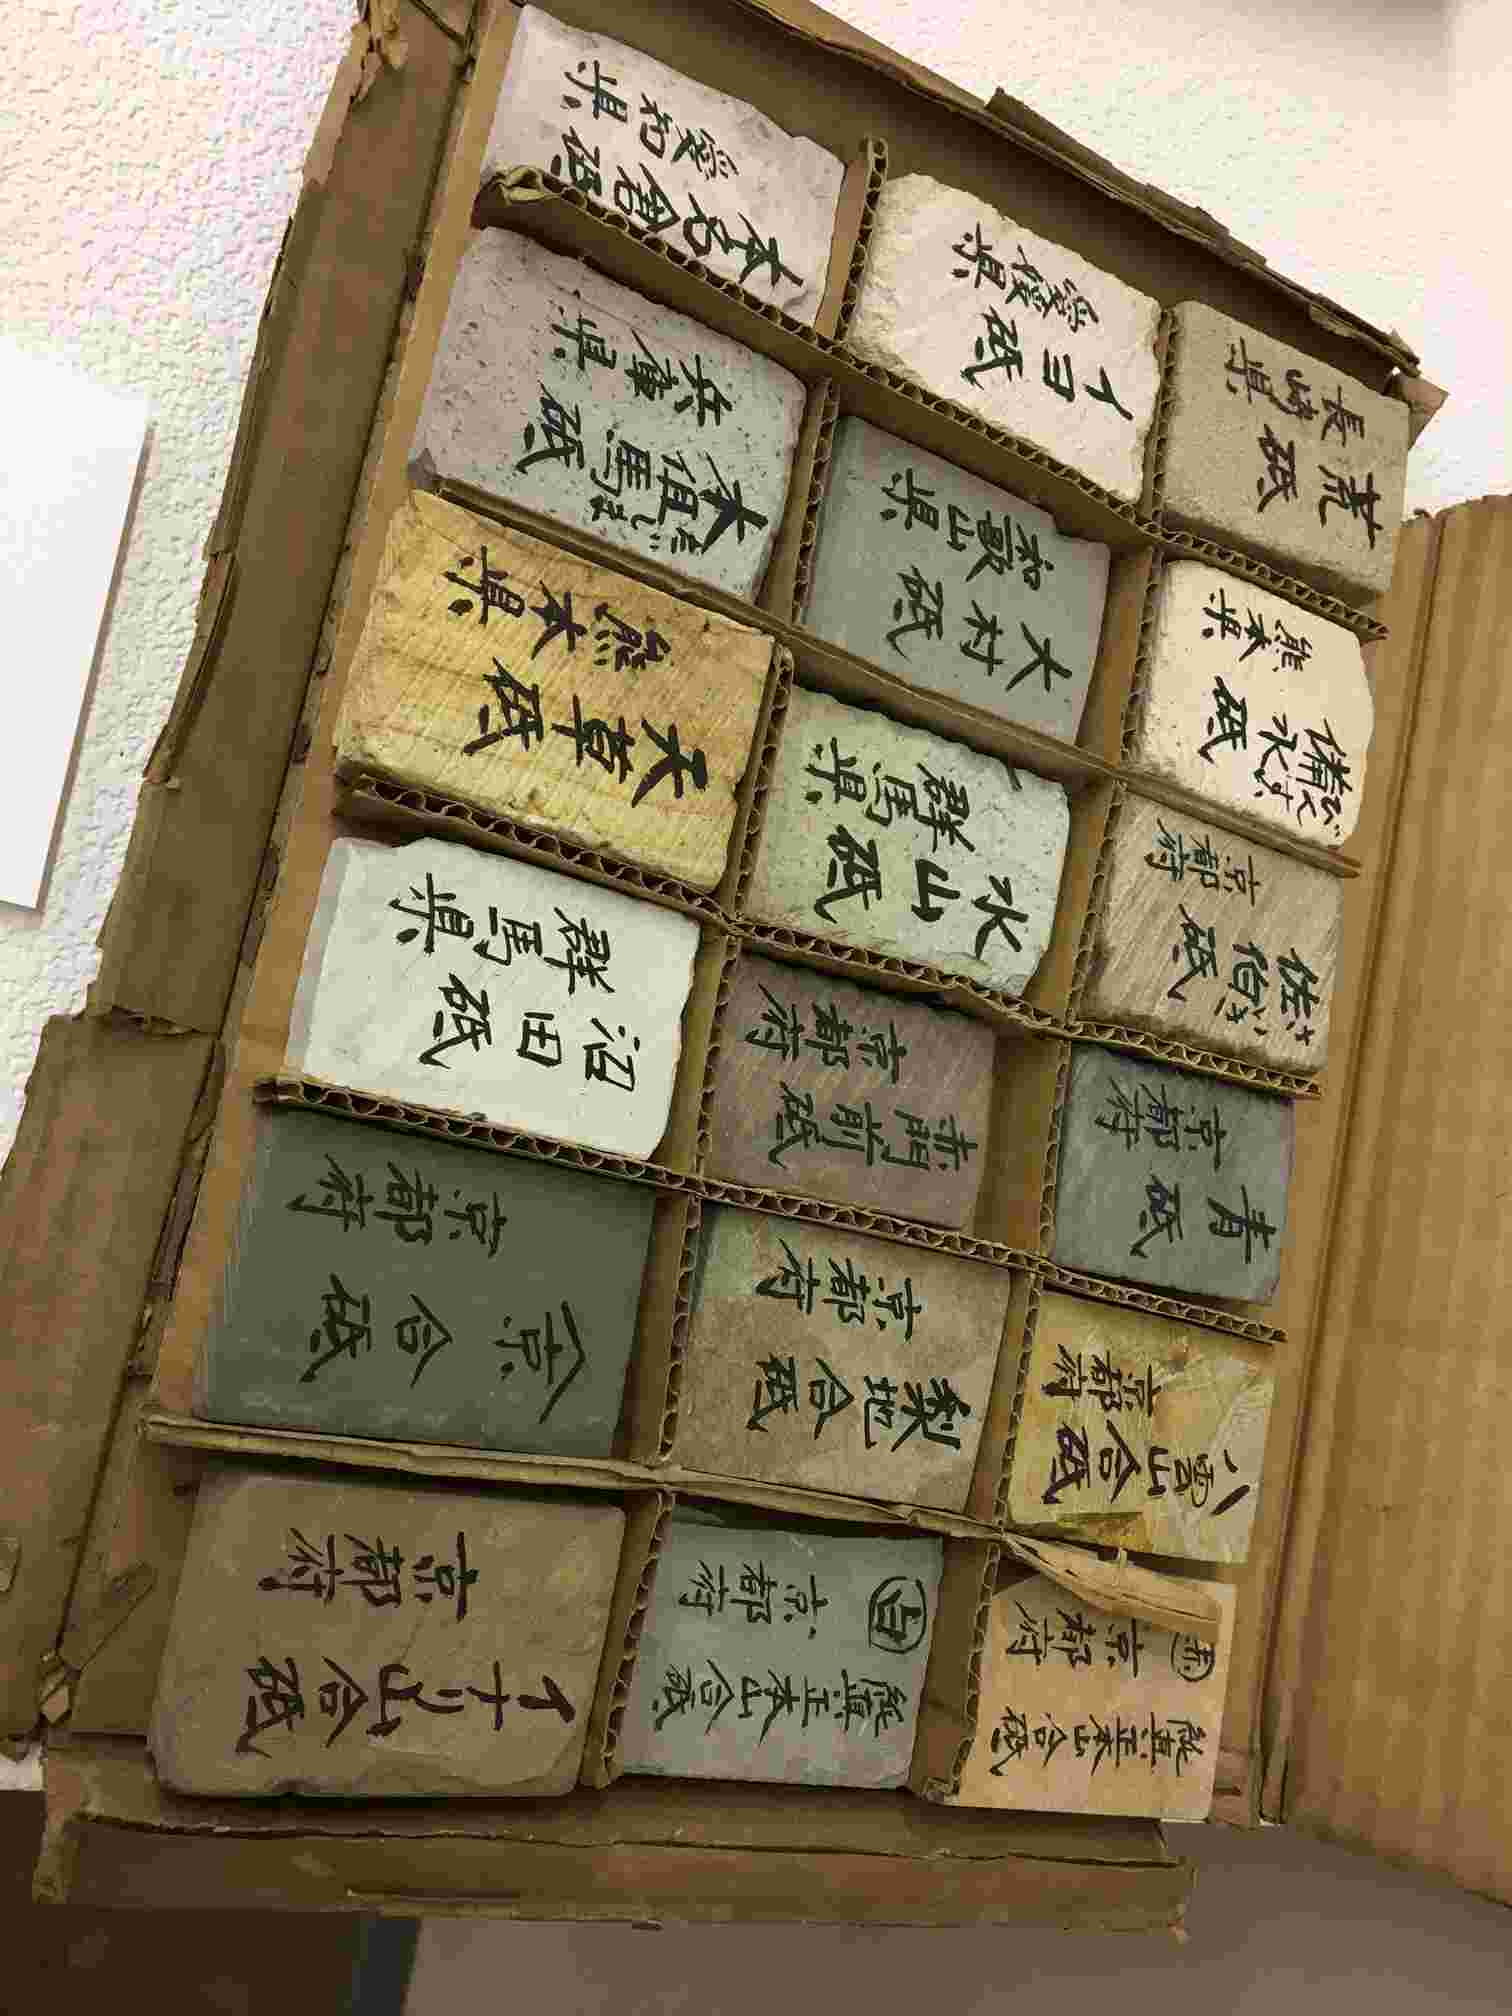 純真正本山合砥
赤 京都府
八雲山合砥
京都府
青砥
京都府
佐伯砥
京都府
備水砥
熊本県
荒砥
長崎県
純真正本山合砥
白 京都府
梨地合砥
京都府
赤門前砥
京都府
氷山砥
群馬県
大村砥
和歌山県
イヨ砥
愛媛県
イナリ山合砥
京都府
〈京〉合砥
京都府
沼田砥
群馬県
天草砥
熊本県
たじま
本但馬砥
兵庫県
本名倉砥
愛知県